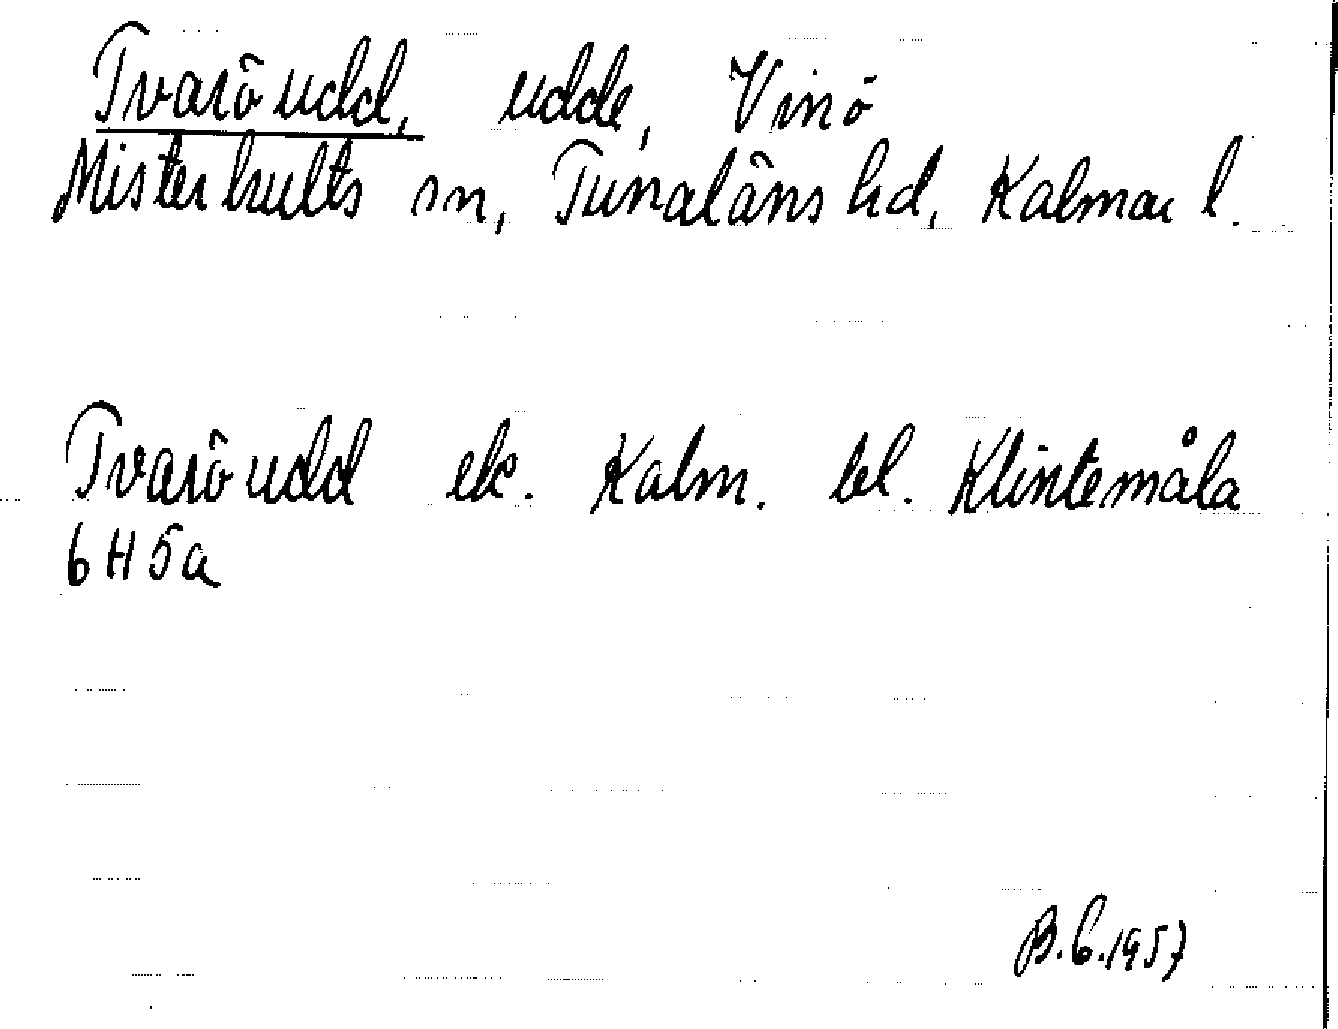 Tvaröudd, udde, Vinö
Misterhults sn, Tunaläns hd, Kalmar l.
Tvaröudd ek. Kalm. bl. Klintemåla
6H5a
B.C.1957